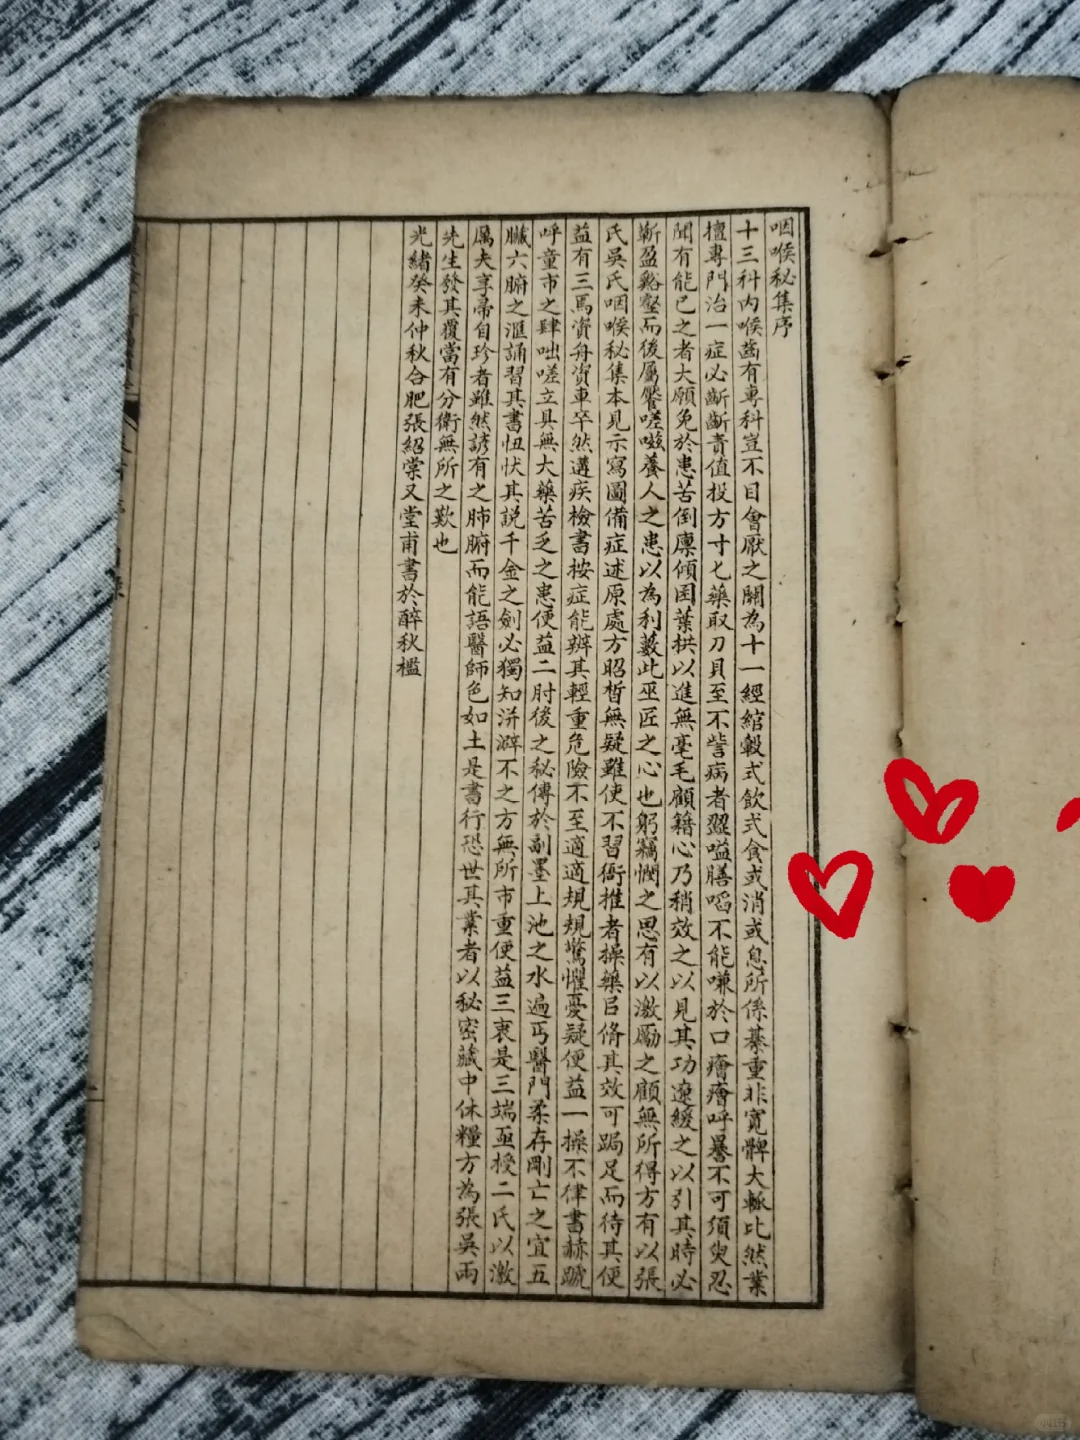 咽喉秘集序
十三科内喉齒有專科豈不目會厭之關為十一經綰轂式飲式食或消或息所係綦重非寬髀大輒比然業
擅專門治一症必齗齗責值投方寸匕藥取刀貝至不訾病者齆嗌膳噎不能嗛於口癐癐呼謈不可須臾忍
聞有能已之者大願免於患苦倒廩傾困葉拱以進無毫毛顧籍心乃稍效之以見其功遼緩之以引其時必
嶄盈谿壑而後屬饜嗟嗞養人之患以為利藪此巫匠之心也躬竊憫之思有以激勵之顧無所得方有以張
氏吳氏咽喉秘集本見示寫圖備症述原處方昭晳無疑雖使不習衙推者操藥㠯脩其效可跼足而待其便
益有三焉資舟資車卒然遘疾檢書按症能辨其輕重危險不至適適規規驚懼憂疑便益一操不律書赫蹏
呼童市之肆咄嗟立具無大藥苦乏之患便益二肘後之秘傳於副墨上池之水遍丐醫門柔存剛亡之宜五
臟六腑之滙誦習其書忸忕其説千金之劍必獨知洴澼不之方無所市重便益三衷是三端亟授二氏以激
厲夫享帚自珍者雖然諺有之肺腑而能語醫師色如土是書行恐世其業者以秘密藏中休糧方為張吳兩
先生發其覆當有分衛無所之歎也
光緒癸未仲秋合肥張紹棠又堂甫書於醉秋檻